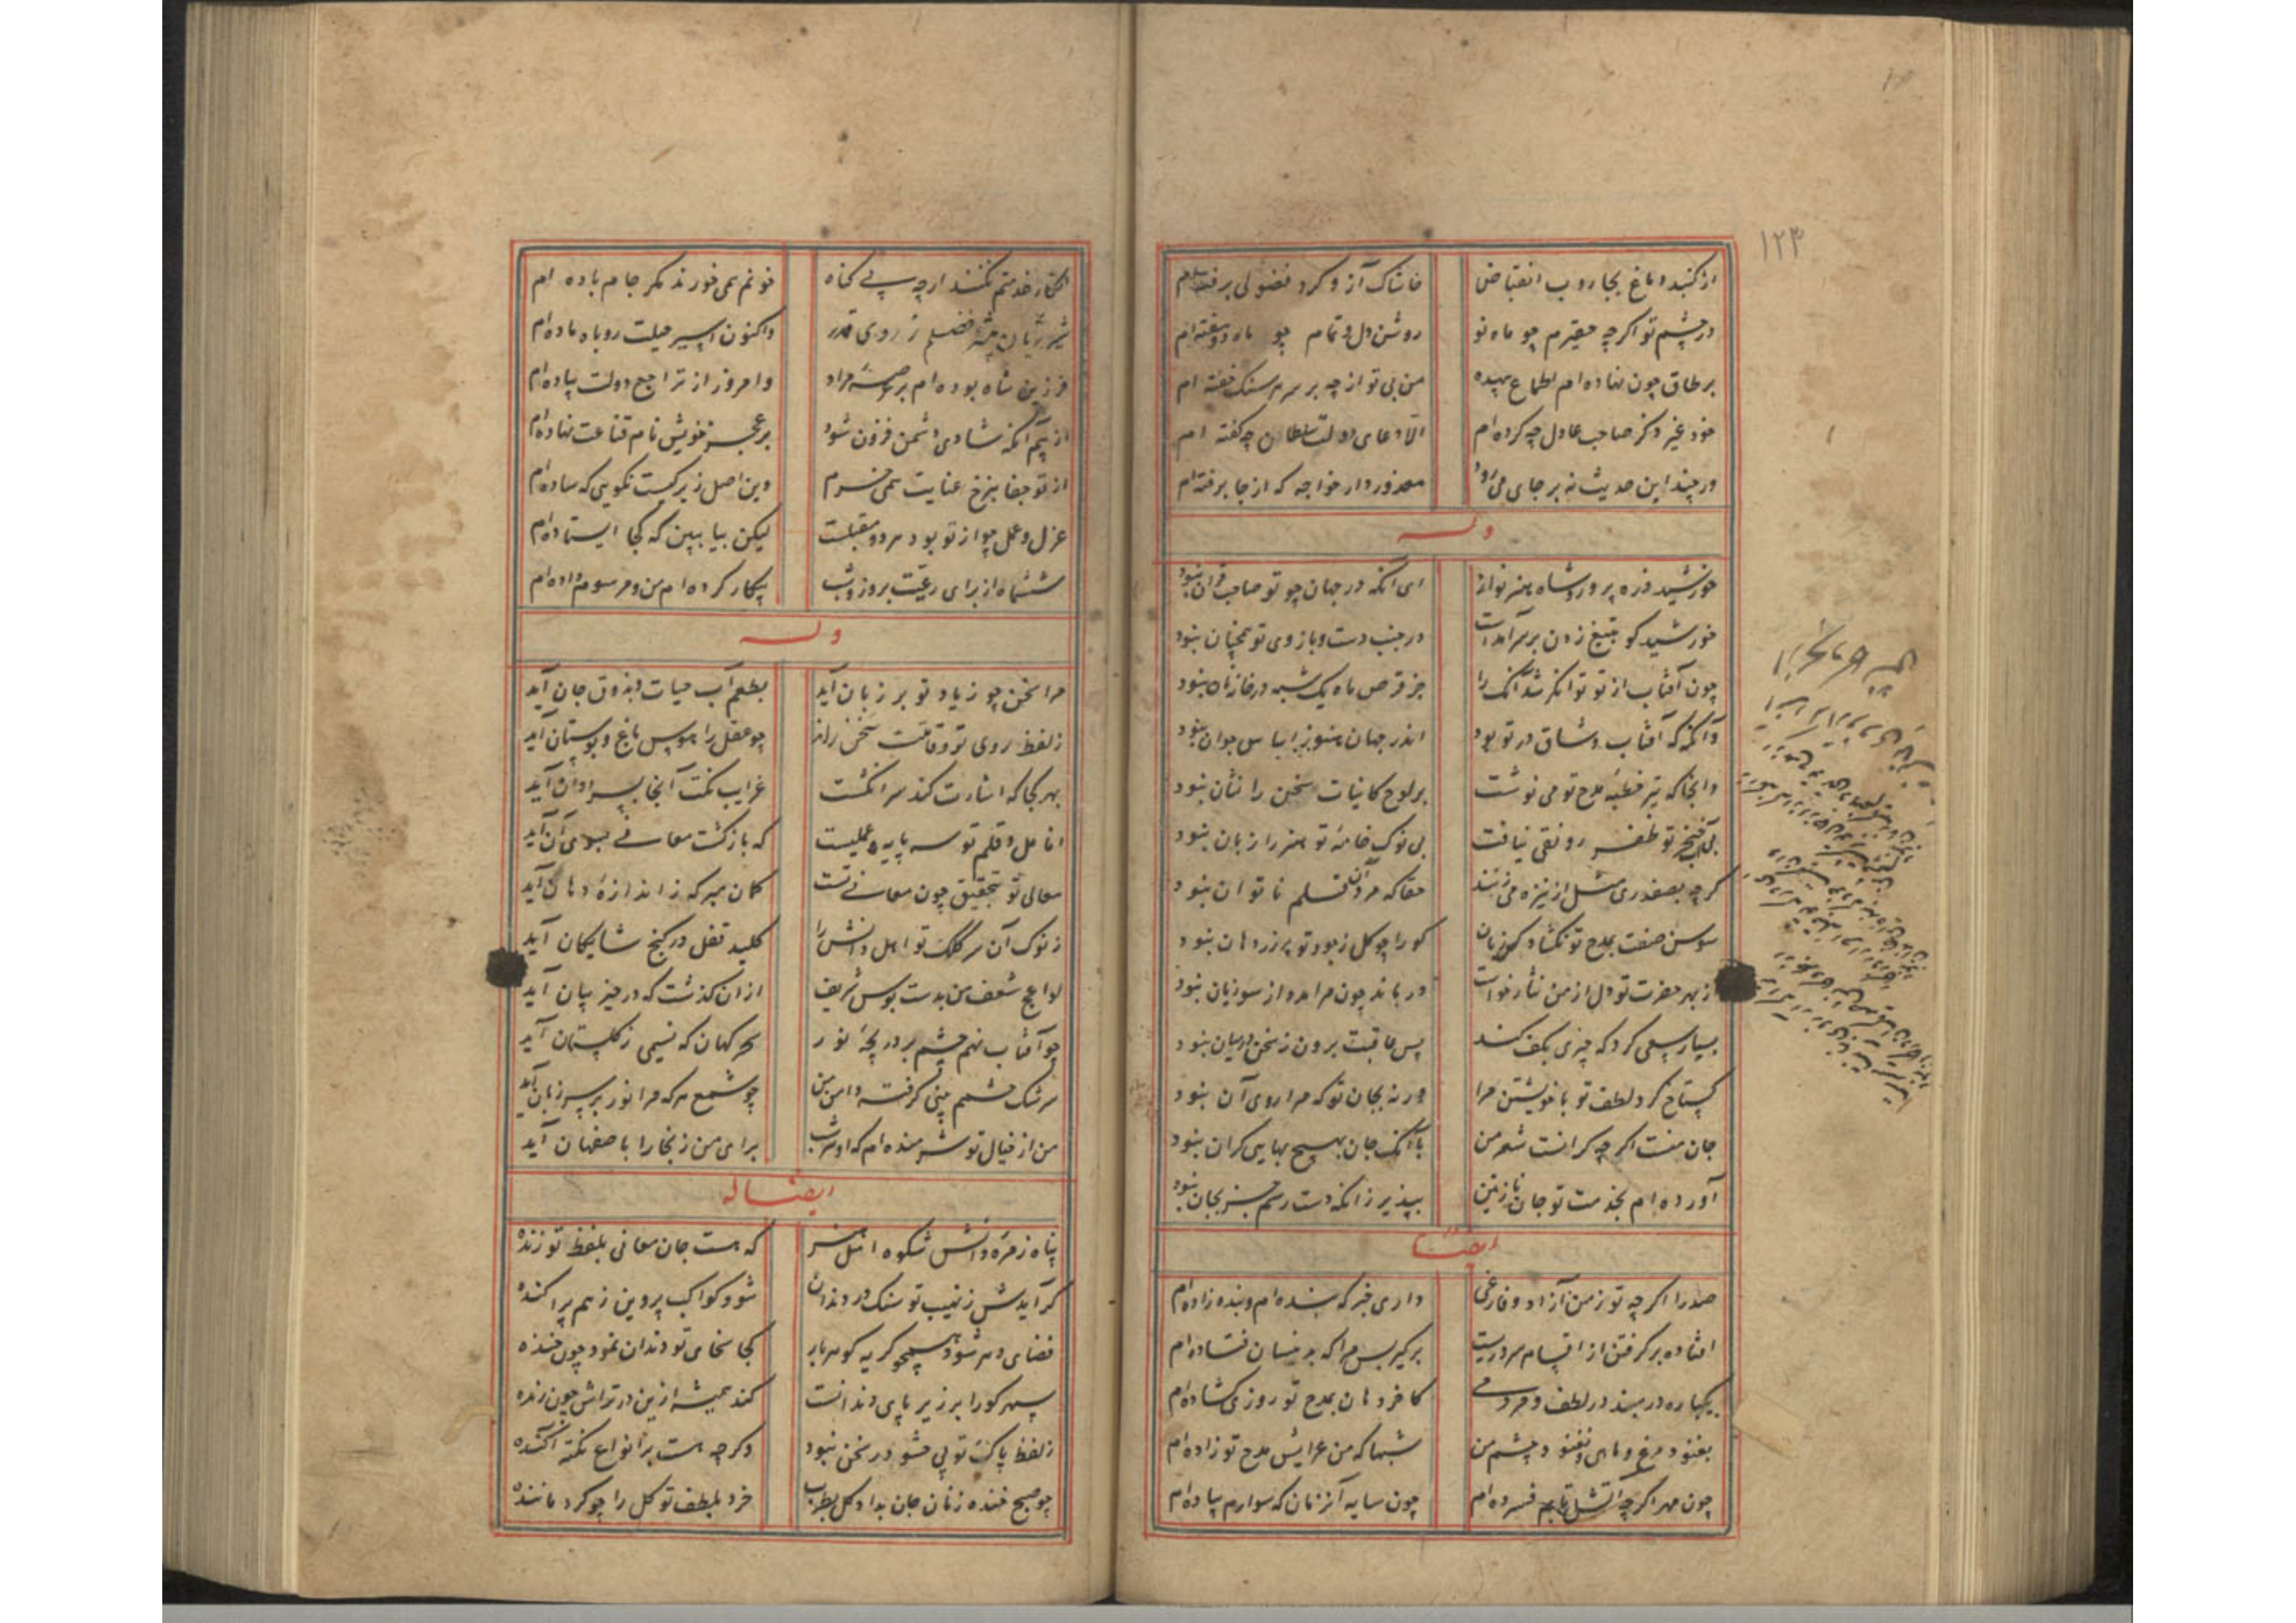 ۱۲۳
از کنبد دماغ بجاروب انقباض خاشاک آز و کرد فضولی برفته‌ام
در چشم تو اکرچه حقیرم چو ماه نو روشن دل و تمام چو ماه دو هفته‌ام
بر طاق چون نهاده‌ام اطماع بیهده من بی تو از چه بر سر سنک خفته ام
خود غیر ذکر صاحب عادل چه کرده‌ام الا دعای دولت سلطان چه کفته ام
ور چند این حدیث نه بر جای می رود معذور دار خواجه که از جا برفته‌ام
وله
خورشید ذره پرور و شاه هنر نواز ای انکه در جهان چو تو صاحب قران نبود
خورشید کو بتیغ زدن بر سر آمدست در جنب دست و بازوی تو همچنان نبود
چون آفتاب از تو توانکر شد آنک را جز قرص ماه یک شبه در خانه نان نبود
وآنکه که آفتاب وشاق در تو بود اندر جهان هنوز اساس جهان نبود
وانجا که تیر خطبه مدح تو می نوشت بر لوح کاینات سخن را نشان نبود
بی فتح تو ظفر رونقی نیافت بی نوک خامه تو هنر را زبان نبود
کرچه بصفدری مثل از نیزه می زنند حقا که مرد آن قلم ناتوان نبود
سوسن صفت بمدح تو نکشاد کس زبان کو را چو کل ز جود تو پر زر دهان نبود
از بهر حضرت تو دل از من نثار خواست درماند چون مرا مدد از سوزیان نبود
بسیار سعی کرد که چیزی بکف کند پس عاقبت برون ز سخن در میان نبود
کستاخ کرد لطف تو با خویشتن مرا ورنه بجان تو که مرا روی آن نبود
جان منست اکرچه کرانست شعر من با آنک جان بهیچ بهایی کران نبود
آورده ام بخدمت تو جان نازنین بپذیر زانکه دست رسم جز بجان نبود
ایضا
صدرا اکرچه تو ز من آزاد و فارغی داری خبر که بنده ام و بنده زاده‌ام
افتاده بر کرفتن از اقسام سروریست بر کیر پس مرا که بدینسان فتاده‌ام
یکباره در مبند در لطف و مردمی کاخر دهان بمدح تو روزی کشاده‌ام
بغنود مرغ و ماهی و نغنود چشم من شبها که من عرایس مدح تو زاده‌ام
چون مهر اکرچه آتش تابم فسرده ام چون سایه آن زمان که سوارم پیاده‌ام
انکار خدمتم نکنند ارچه بی کناه خونم همی خورند مکر جام باده ام
شیر ژیان بیشه فضلم ز روی قدر واکنون اسیر حیلت روباه ماده‌ام
فرزین شاه بوده ام بر عرصه مراد وامروز از تراجع دولت پیاده‌ام
از بیم آنکه شادی دشمن فزون شود بر عجز خویش نام قناعت نهاده‌ام
از تو جفا بنرخ عنایت همی خرم وین اصل زیرکیست نکویی که ساده‌ام
عزل و عمل چو از تو بود هر دو مقبلست لیکن بیا ببین که کجا ایستاده‌ام
ششماه از برای رعیت بروز و شب بیکار کرده ام من و مرسوم داده‌ام
وله
مرا سخن چو ز یاد تو بر زبان آید بطعم آب حیات و بذوق جان آید
ز لفظ روی تو و قامتت سخن راند چو عقل را هوس باغ و بوستان آید
بهر کجا که اشارت کند سر انکشت غرایب نکت آنجا بسر دوان آید
انامل و قلم تو سه پایه و عملیست که بازکشت معانی بسوی آن آید
معالی تو بتحقیق چون معانی تست کمان مبر که ز اندازه دهان آید
ز نوک آن سر کلک تو اهل دانش را کلید قفل در کنج شایکان آید
لواعج شعف من بدست بوس شریف از آن کذشت که در حیز بیان آید
چو آفتاب نهم چشم بر دریچه نور سحرکهان که نسیمی ز کلستان آید
سرشک چشمم بینی کرفته دامن من چو شمع هرکه مرا نور بر سر زبان آید
من از خیال تو شرمنده ام که او هر شب برای من ز بخارا باصفهان آید
ایضا له
پناه زمره دانش شکوه اهل هنر که هست جان معانی بلفظ تو زنده
کر آیدش ز نهیب تو سنک در دندان شود کواکب پروین ز هم پراکنده
فضای دهر شود همچو کریه کوهر بار کجا سخای تو دندان نمود چون خنده
سپهر کورا بر زیر پای دندانست کند همیشه ازین در تراش چون رنده
ز لفظ پاکت تو بی حشو در سخن نبود وکرچه هست بر انواع نکته آکنده
چو صبح خنده زنان جان بداد کل بطرب خرد بلطف تو کل را چو کرد ماننده